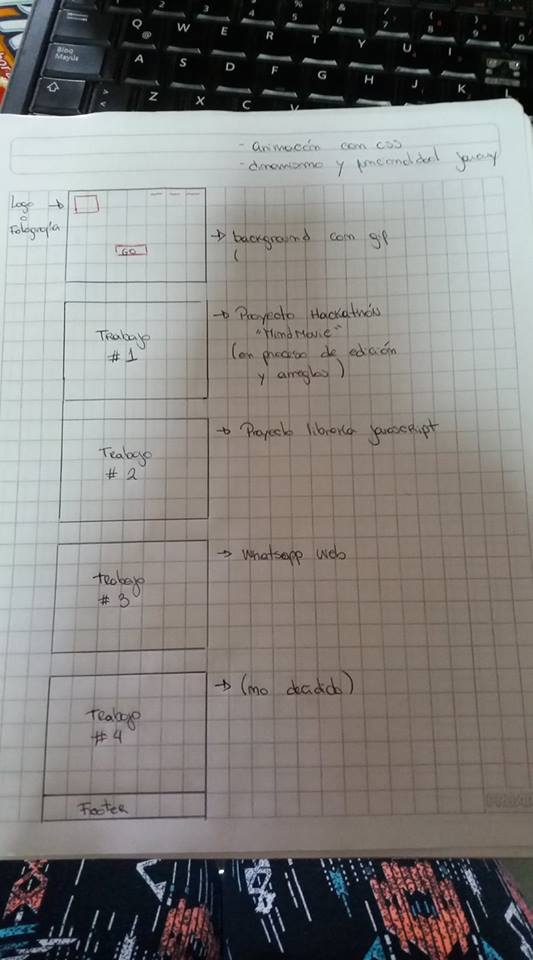 Q
W
E
R
T
Y
U
I
@
Bloq
Mayús
A
S
D
F
G
H
J
K
L
Z
X
C
- animación con css
- dinamismo y funcionalidad jquery
Logo
o
Fotografía
GO
→ background con gif
(
Trabajo
# 1
→ Proyecto Hackathón
"MindMovie"
(en proceso de edición
y arreglos)
Trabajo
# 2
→ Proyecto librería javascript
Trabajo
# 3
→ Whatsapp Web
Trabajo
# 4
→ (no decidido)
Footer